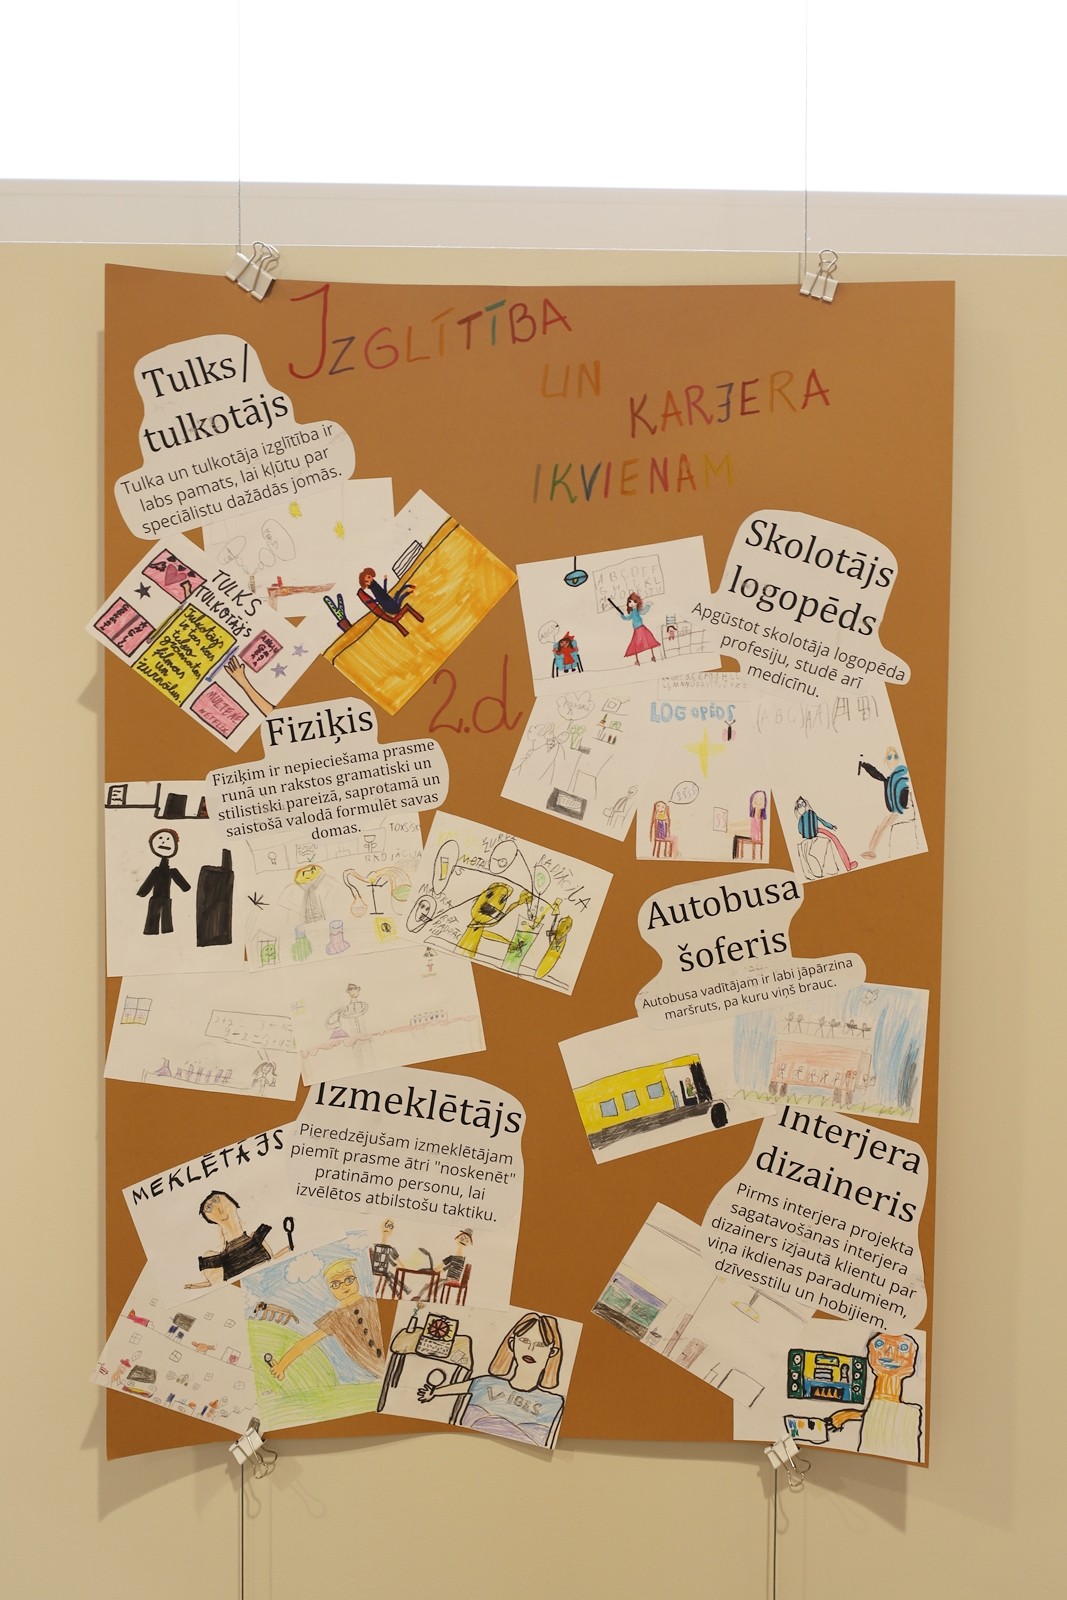 IZGLĪTĪBA
UN
KARJERA
IKVIENAM
2.d
Tulks/
tulkotājs
Tulka un tulkotāja izglītība ir
labs pamats, lai kļūtu par
speciālistu dažādās jomās.
TULKS
TULKOTĀJS
Skolotājs
logopēds
Apgūstot skolotāja logopēda
profesiju, studē arī
medicīnu.
LOGOPĒDS
Fiziķis
Fiziķim ir nepieciešama prasme
runā un rakstos gramatiski un
stilistiski pareizā, saprotamā un
saistošā valodā formulēt savas
domas.
Autobusa
šoferis
Autobusa vadītājam ir labi jāpārzina
maršruts, pa kuru viņš brauc.
Izmeklētājs
Pieredzējušam izmeklētājam
piemīt prasme ātri "noskenēt"
pratināmo personu, lai
izvēlētos atbilstošu taktiku.
MEKLĒTĀJS
VIBES
Interjera
dizaineris
Pirms interjera projekta
sagatavošanas interjera
dizainers izjautā klientu par
viņa ikdienas paradumiem,
dzīvesstilu un hobijiem.